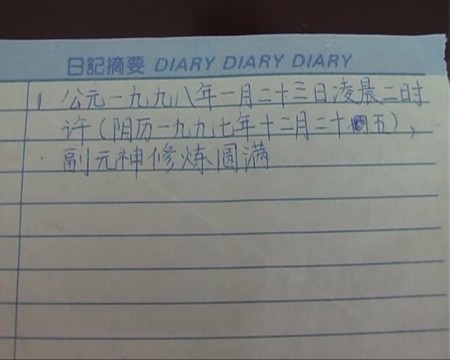 日記摘要 DIARY DIARY DIARY
1 公元一九九八年一月二十三日凌晨二时
许（阴历一九九七年十二月二十五），
副元神修炼圆满